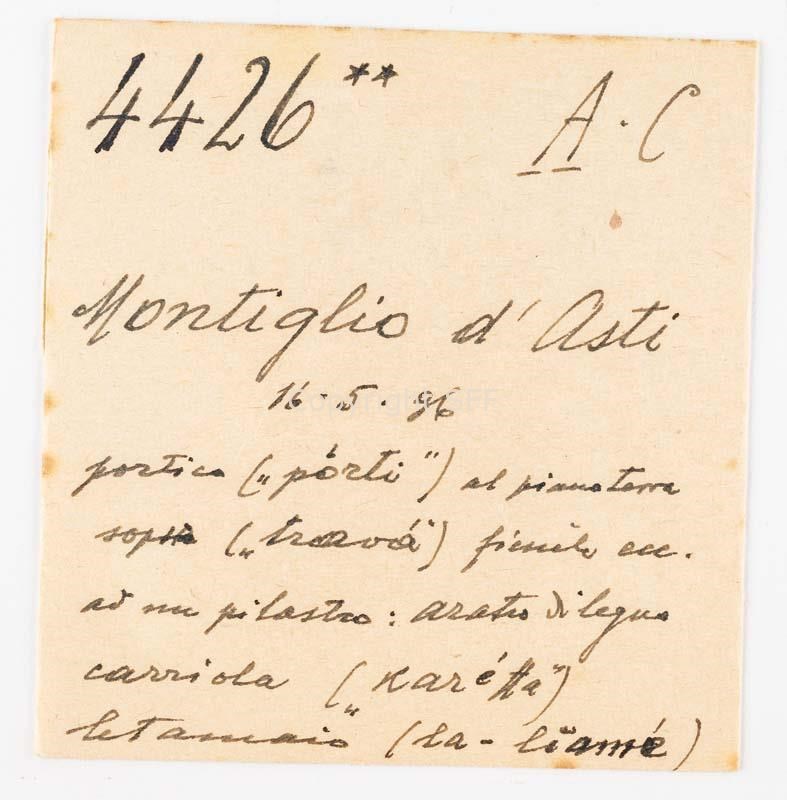 4426** A. C
Montiglio d'Asti
16. 5. 96
portico („pòrti") al pianoterra
sopra („travá") fienile ecc.
ad un pilastro: aratro di legno
carriola („karétta")
letamaio („la-liamé)